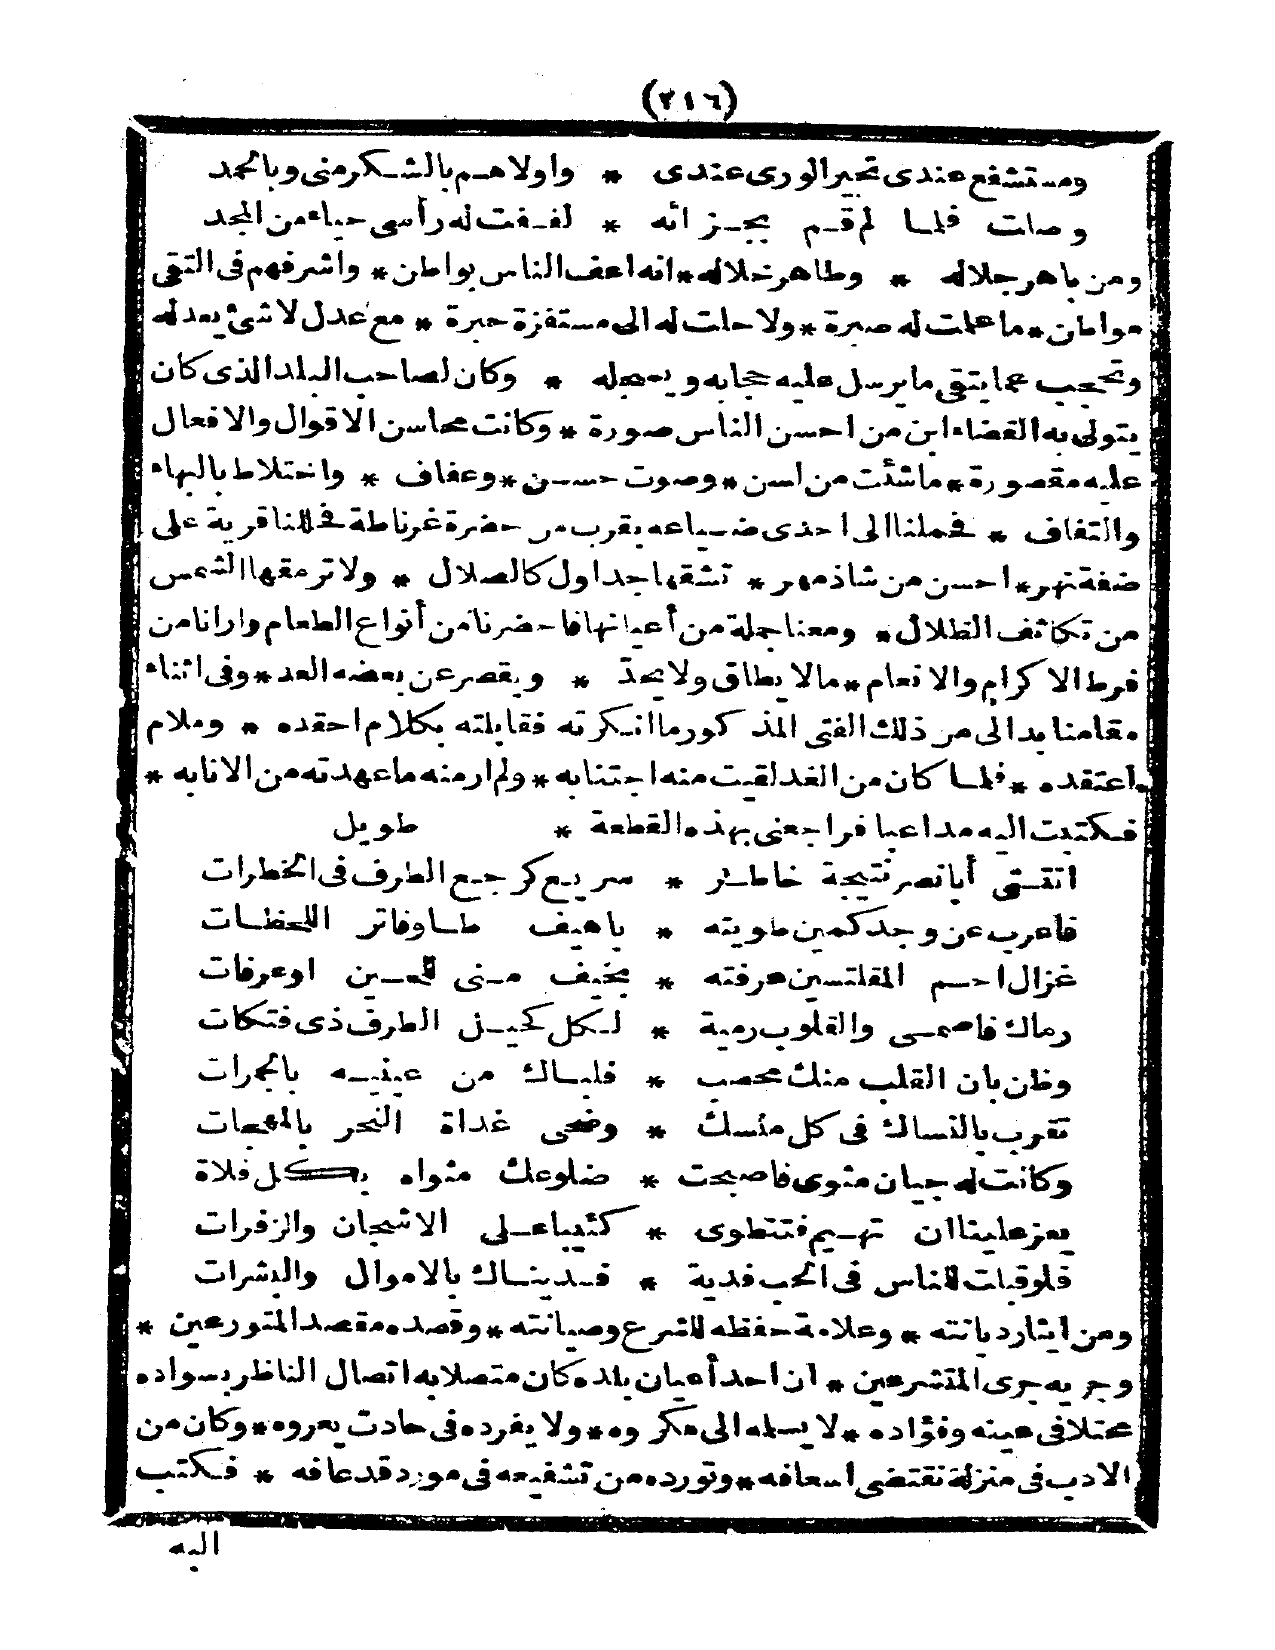 (٢١٦)
ومستشفع عندى بخير الورى عندى * واولاهم بالشكر منى وبالحمد
وصلت فلما لم قم بجزائه * لففت له رأسى حياء من المجد
ومن باهر جلاله * وطاهر خلاله * انه اعف الناس بواطن * واشرفهم فى التقى
مواطن * ما علمت له صبوة * ولا حلت له الى مستفزة حبوة * مع عدل لا شئ يعدله
وتحجب عما يتقى ما يرسل عليه حجابه ويسدله * وكان لصاحب البلد الذى كان
يتولى به القضاء ابن من احسن الناس صورة * وكانت محاسن الاقوال والافعال
عليه مقصورة * ما شئت من لسن * وصوت حسن * وعفاف * واختلاط بالبهاء
والتفاف * فحملنا الى احدى ضياعه بقرب من حضرة غرناطة فحللنا قرية على
ضفة نهر * احسن من شاذمهر * تشقها جداول كالصلال * ولا ترمقها الشمس
من تكاثف الظلال * ومعنا جملة من أعيانها فاحضرنا من أنواع الطعام وارانا من
فرط الاكرام والانعام * مالا يطاق ولا يحد * ويقصر عن بعضه العد * وفى اثناء
مقامنا بدالى من ذلك الفتى المذكور ما انكرته فقابلته بكلام احقده * وملام
اعتقده * فلما كان من الغد لقيت منه اجتنابه * ولم ار منه ما عهدته من الانابه *
فكتبت اليه مداعبا فراجعنى بهذه القطعة * طويل
اتتنى أبا نصر نتيجة خاطر * سريع كرجع الطرف فى الخطرات
فاعرب عن وجد كمين طويته * باهيف طاو فاتر اللحظات
غزال احم المقلتين عرفته * بخيف منى للحسين او عرفات
رماك فاصمى والقلوب رمية * لكل كحيل الطرف ذى فتكات
وظن بان القلب منك محصب * فلباك من عينيه بالجمرات
تقرب بالنساك فى كل منسك * وضحى غداة النحر بالمهجات
وكانت له جيان مثوى فاصبحت * ضلوعك مثواه بكل فلاة
يعز علينا ان تهيم فتنطوى * كئيبا على الاشجان والزفرات
فلو قبلت للناس فى الحب فدية * فديناك بالاموال والبشرات
ومن ايثار ديانته * وعلامة حفظه للشرع وصيانته * وقصده مقصد المتورعين *
وجريه جرى المتشرعين * ان احد أعيان بلده كان متصلا به اتصال الناظر بسواده
محتلا فى عينه وفؤاده * لا يسلمه الى مكروه * ولا يفرده فى حادث يعروه * وكان من
الادب فى منزلة تقتضى اسعافه * وتورده من تشفيعه فى مورد قد عافه * فكتب
اليه